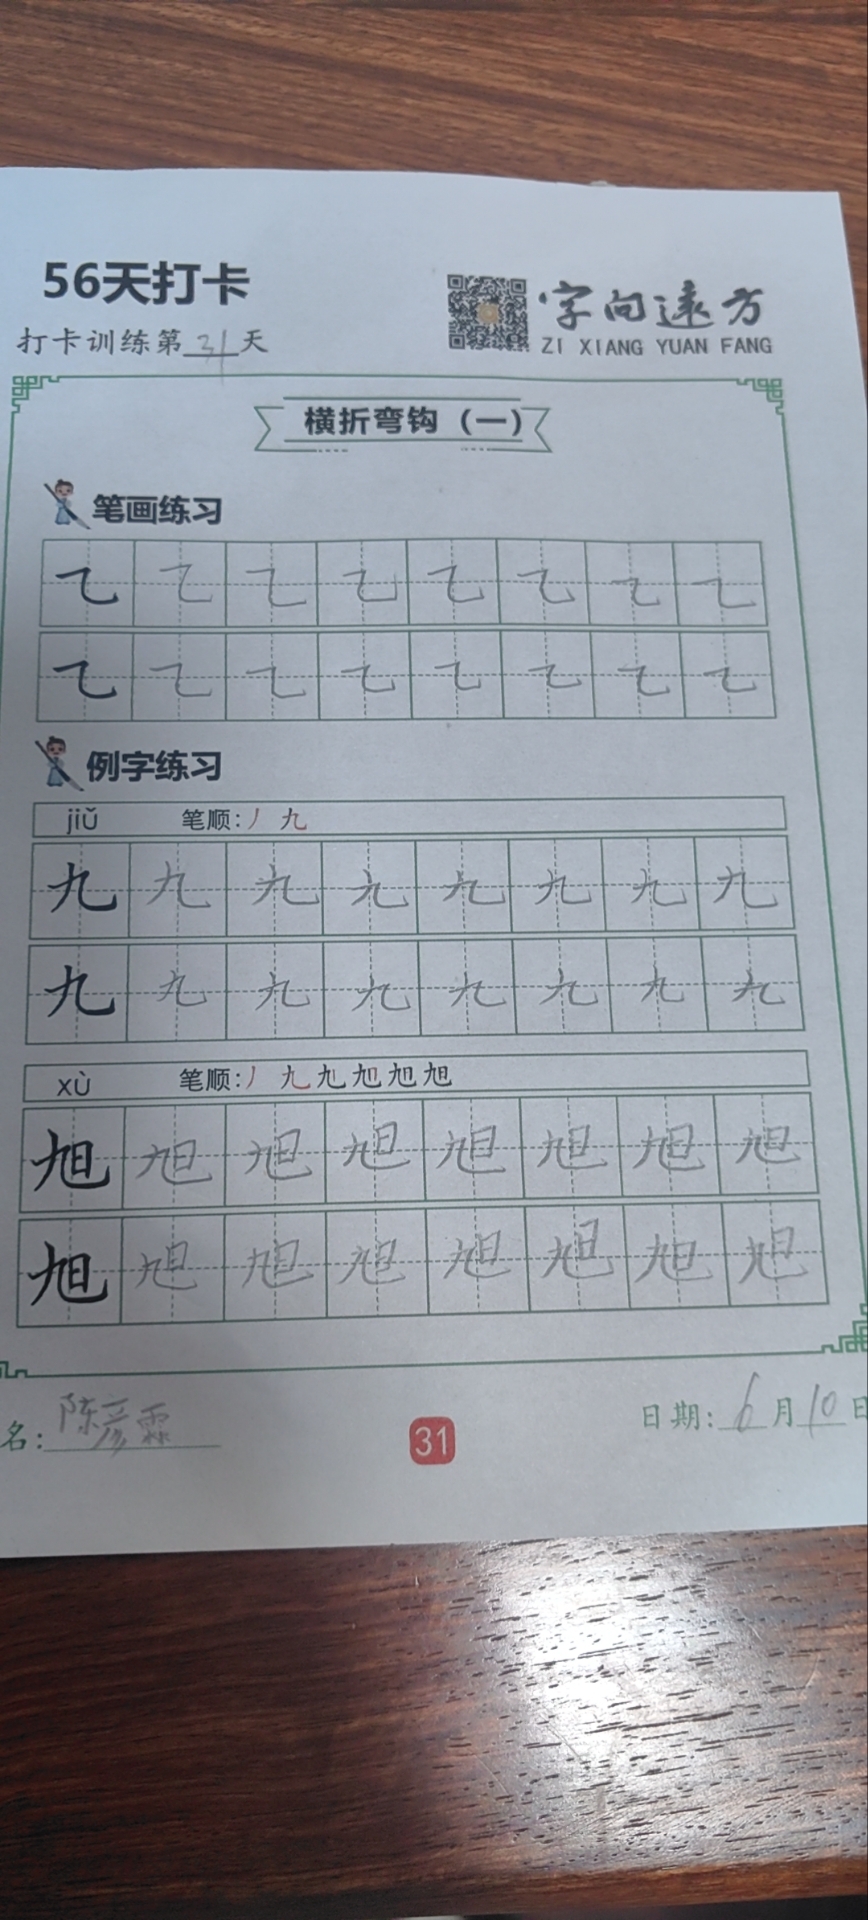 56天打卡
字向远方
打卡训练第31天
ZI XIANG YUAN FANG
横折弯钩（一）
笔画练习
㇈ ㇈ ㇈ ㇈ ㇈ ㇈ ㇈ ㇈
㇈ ㇈ ㇈ ㇈ ㇈ ㇈ ㇈ ㇈
例字练习
jiǔ 笔顺:丿 九
九 九 九 九 九 九 九 九
九 九 九 九 九 九 九 九
xù 笔顺:丿 九 旭 旭 旭 旭
旭 旭 旭 旭 旭 旭 旭 旭
旭 旭 旭 旭 旭 旭 旭 旭
名:陈彦霖
31
日期:6月10日